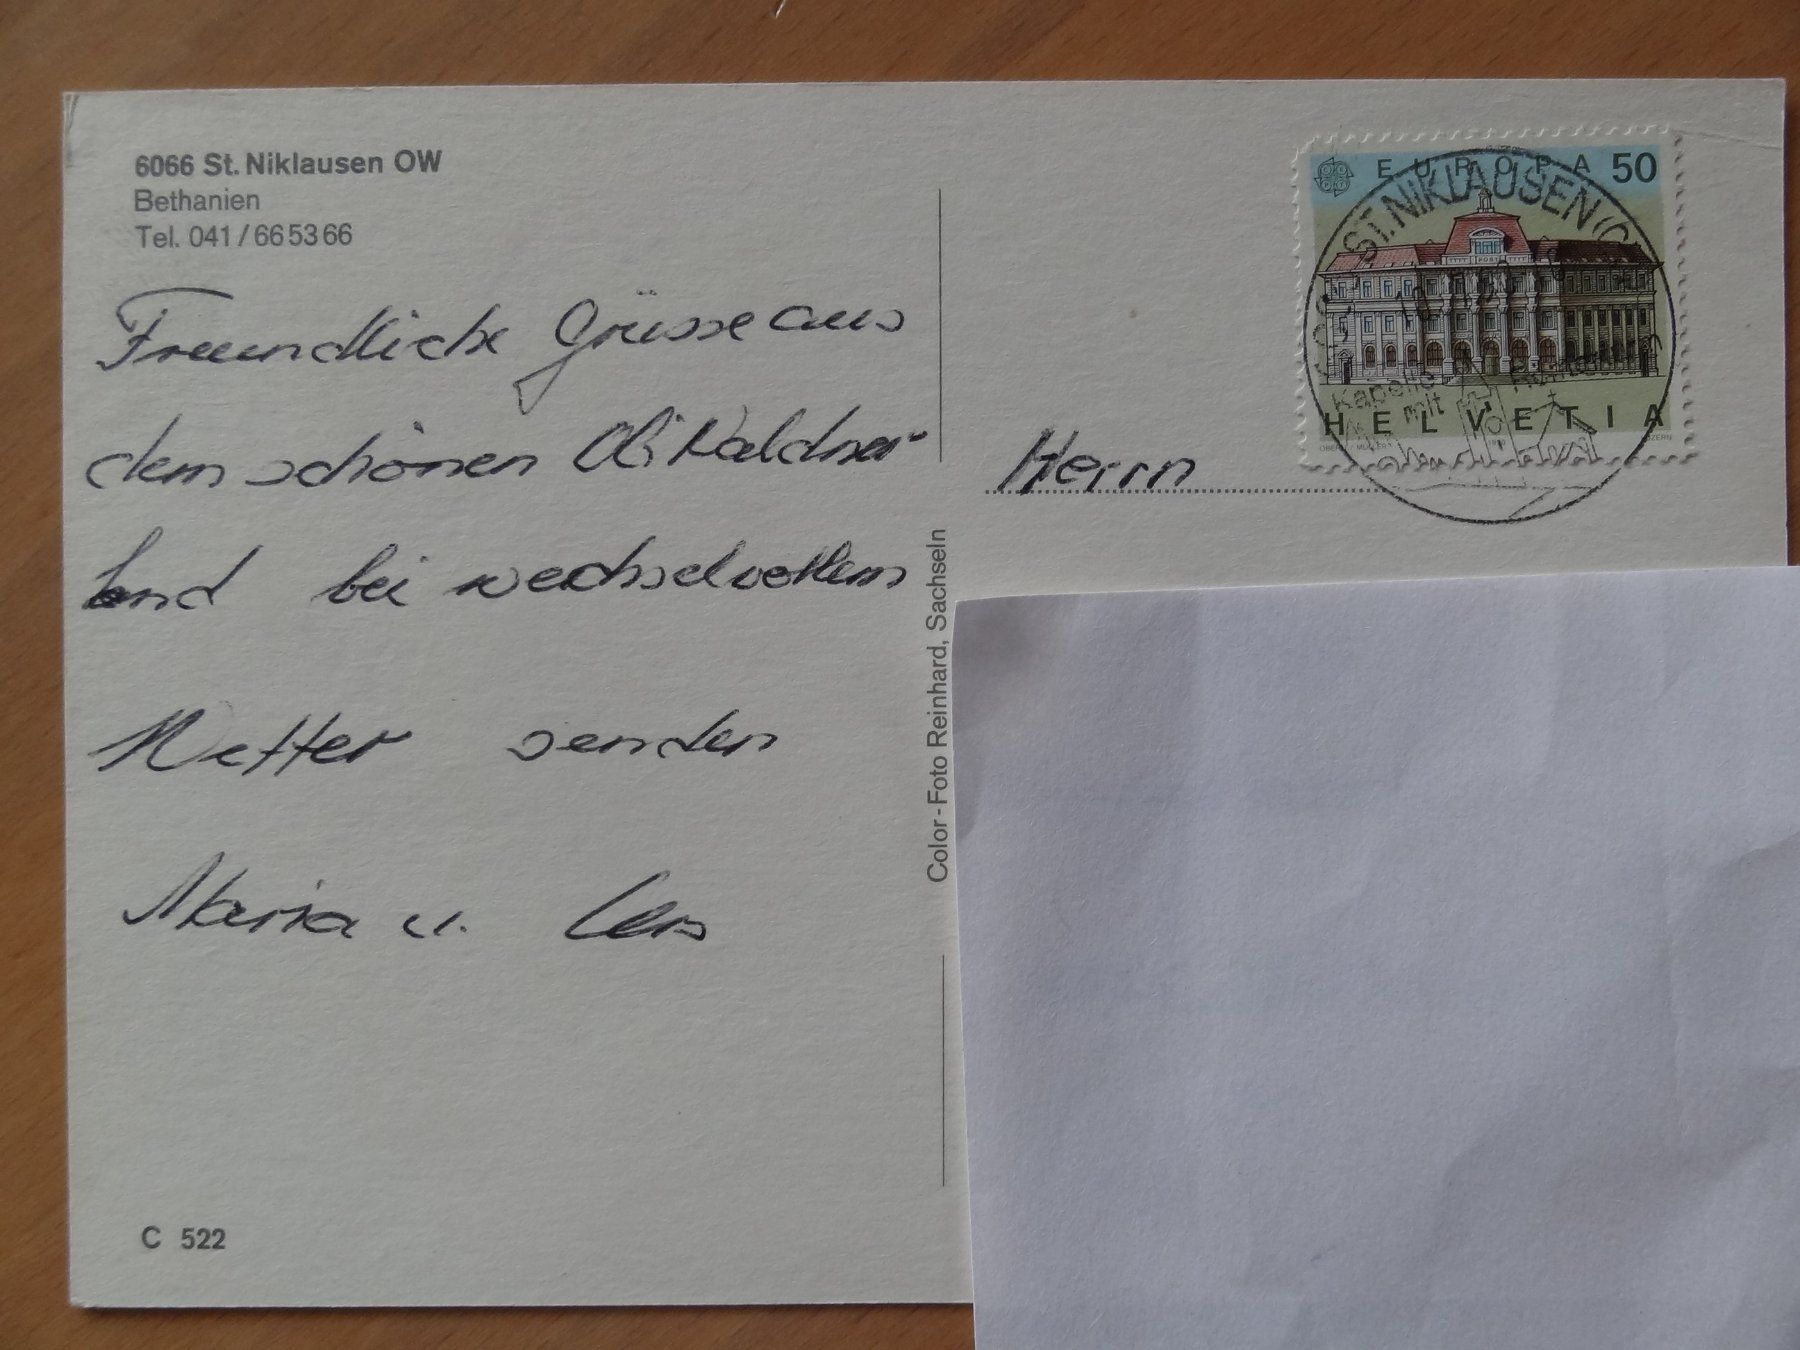 6066 St. Niklausen OW
Bethanien
Tel. 041/665366
Freundliche Grüsse aus
dem schönen Obwaldner-
land bei wechselvollem
Wetter senden
Maria u.
C 522
Color-Foto Reinhard, Sachseln
EUROPA 50
ST. NIKLAUSEN
POST
Kapelle
mit
HELVETIA
Herrn